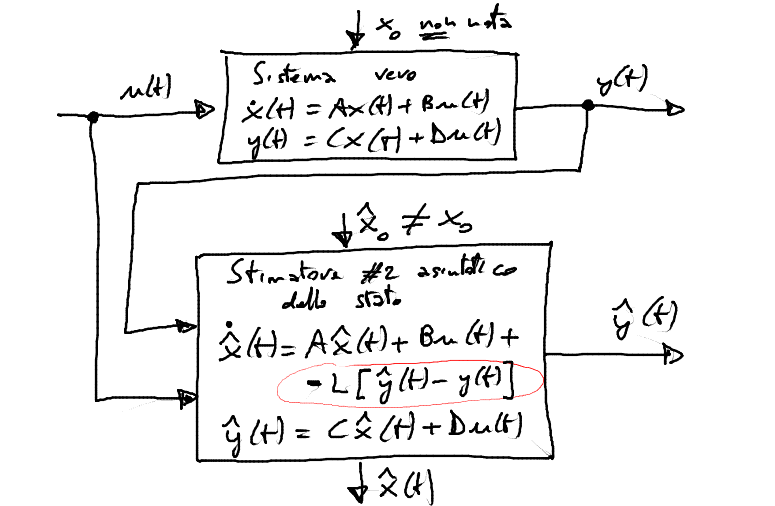 x₀ non nota
u(t)
y(t)
Sistema vero
ẋ(t) = Ax(t) + Bu(t)
y(t) = Cx(t) + Du(t)
x̂₀ ≠ x₀
Stimatore #2 asintotico
dello stato
x̂̇(t) = Ax̂(t) + Bu(t) +
- L [ŷ(t) - y(t)]
ŷ(t) = Cx̂(t) + Du(t)
ŷ(t)
x̂(t)